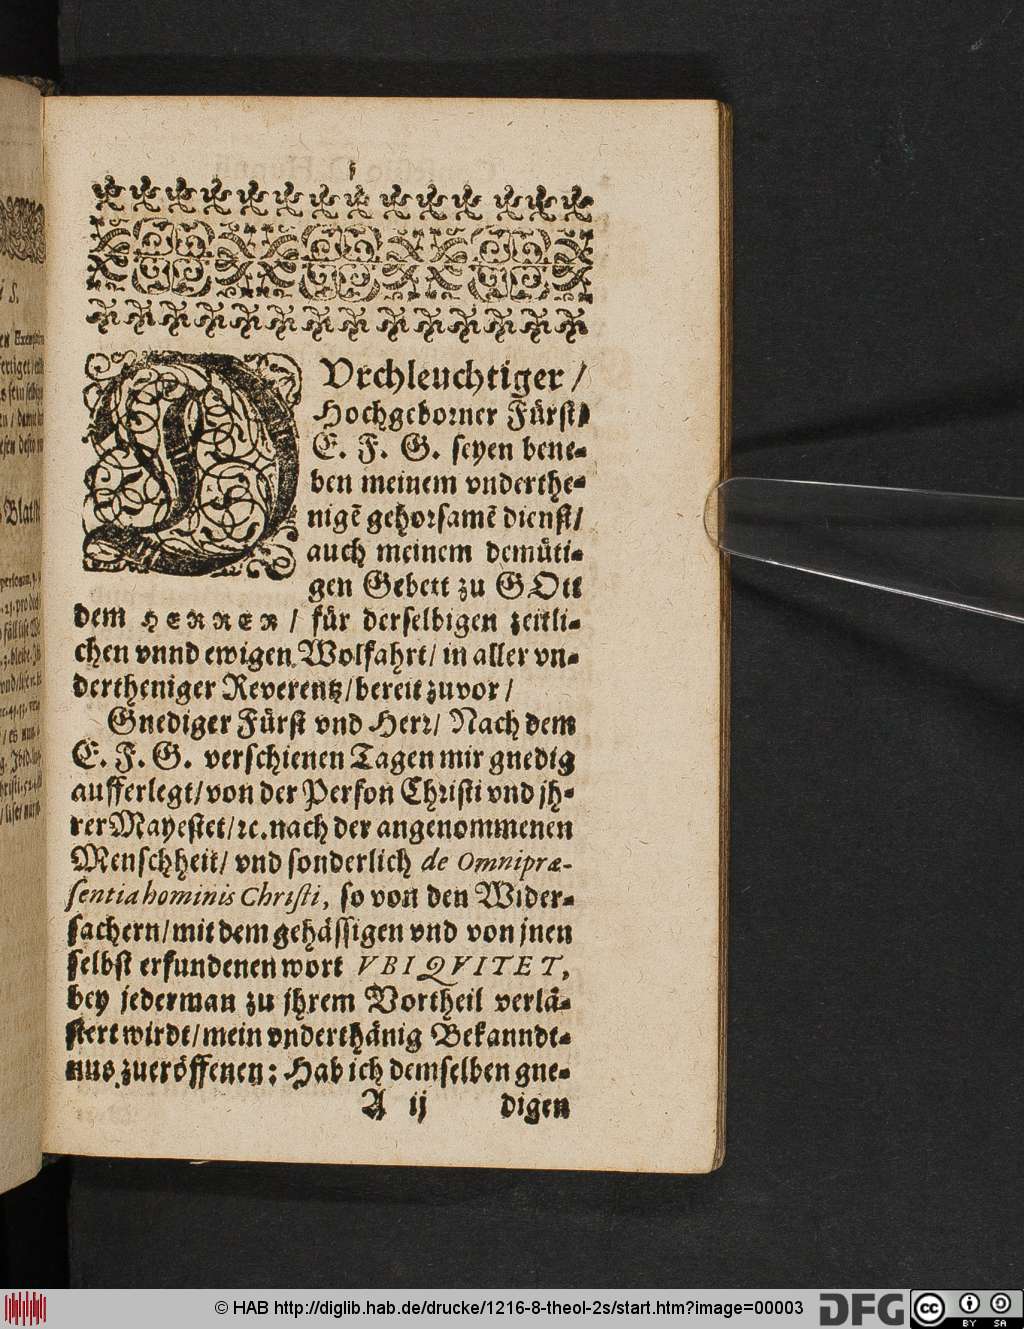 DVrchleuchtiger /
Hochgeborner Fürst/
E. F. G. seyen bene-
ben meinem vnderthe-
nigẽ gehorsamẽ dienst/
auch meinem demüti-
gen Gebett zu GOtt
dem HERREN / für derselbigen zeitli-
chen vnnd ewigen Wolfahrt/ in aller vn-
dertheniger Reverentz/bereit zuvor /
Gnediger Fürst vnd Herr/ Nach dem
E. F. G. verschienen Tagen mir gnedig
aufferlegt/von der Person Christi vnd jh-
rer Mayestet/ꝛc.nach der angenommenen
Menschheit/ vnd sonderlich de Omnipræ-
sentia hominis Christi, so von den Wider-
sachern/mit dem gehässigen vnd von jnen
selbst erfundenen wort VBIQVITET,
bey jederman zu jhrem Vortheil verlä-
stert wirdt/mein vnderthänig Bekanndt-
nus zueröffenen: Hab ich demselben gne-
A ij digen
© HAB http://diglib.hab.de/drucke/1216-8-theol-2s/start.htm?image=00003
DFG
cc BY SA